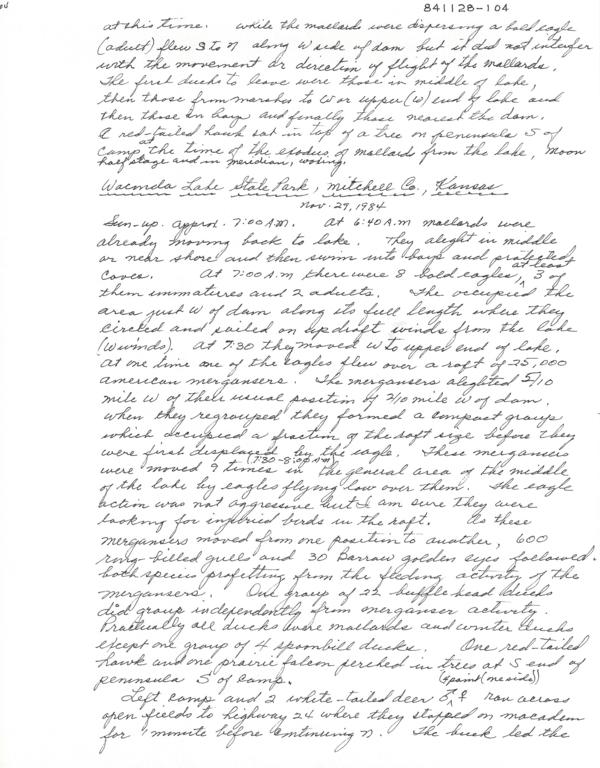 841128-104
at this time. While the mallards were dispersing a bald eagle
(adult) flew S to N along W side of dam but it did not interfer
with the movement or direction of flight of the mallards.
The first ducks to leave were those in middle of lake,
then those from marshes to W or upper (W) end of lake and
then those in bays and finally those nearest the dam.
A red-tailed hawk sat in top of a tree on peninsula S of
camp at the time of the exodus of mallards from the lake, moon
half stage and in meridian, waxing.
Waconda Lake State Park, Mitchell Co., Kansas
Nov. 29, 1984
Sun-up approx. 7:00 A.M. At 6:40 A.M mallards were
already moving back to lake. They alight in middle
or near shore and then swim into bays and protected
coves. At 7:00 A.M there were 8 bald eagles, at least 3 of
them immatures and 2 adults. The occupied the
area just W of dam along its full length where they
circled and sailed on updraft winds from the lake
(W winds). At 7:30 they moved W to upper end of lake.
At one time one of the eagles flew over a raft of 25,000
american mergansers. The mergansers alighted 5/10
mile W of their usual position of 2/10 mile W of dam.
When they regrouped they formed a compact group
which occupied a fraction of the raft size before they
were first displaced by the eagle. These mergansers
were moved 9 times (7:30-8:00 AM) in the general area of the middle
of the lake by eagles flying low over them. The eagle
action was not aggressive but I am sure they were
looking for injured birds in the raft. As these
mergansers moved from one position to another, 600
ring-billed gulls and 30 Barrow golden eyes followed.
both species profitting from the feeding activity of the
mergansers. One group of 22 buffle head ducks
did group independently from merganser activity.
Practically all ducks were mallards and winter ducks
except one group of 4 spoonbill ducks. One red-tailed
hawk and one prairie falcon perched in trees at S end of
peninsula S of camp.
Left camp and 2 white-tailed deer ♂ (4 point (one side)) ♀ ran across
open fields to highway 24 where they stopped on macadam
for 1 minute before continuing N. The buck led the